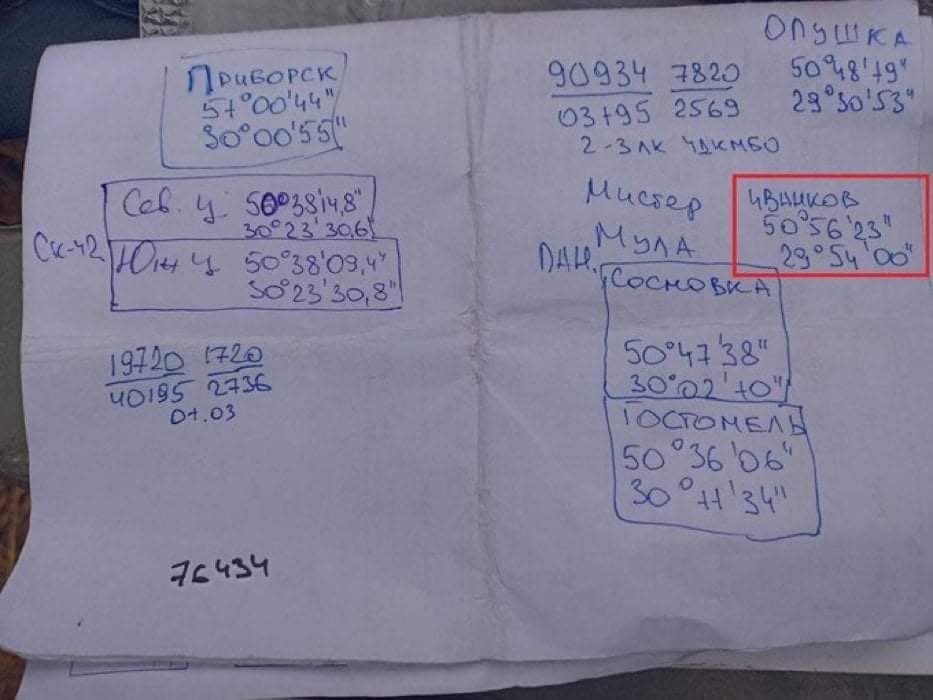 ПРИБОРСК
51°00'44"
30°00'55"
Сев. ц. 50°38'14,8"
30°23'30,6"
СК-42
Южн ц 50°38'09,4"
30°23'30,8"
19720 1720
40195 2736
07.03
76434
ОПУШКА
50°48'19"
29°30'53"
90934 7820
03795 2569
2-3 ЛК ЧДКМБО
Мистер
Мула
ИВАНКОВ
50°56'23"
29°54'00"
ДАН.
СОСНОВКА
50°47'38"
30°02'10"
ГОСТОМЕЛЬ
50°36'06"
30°11'34"